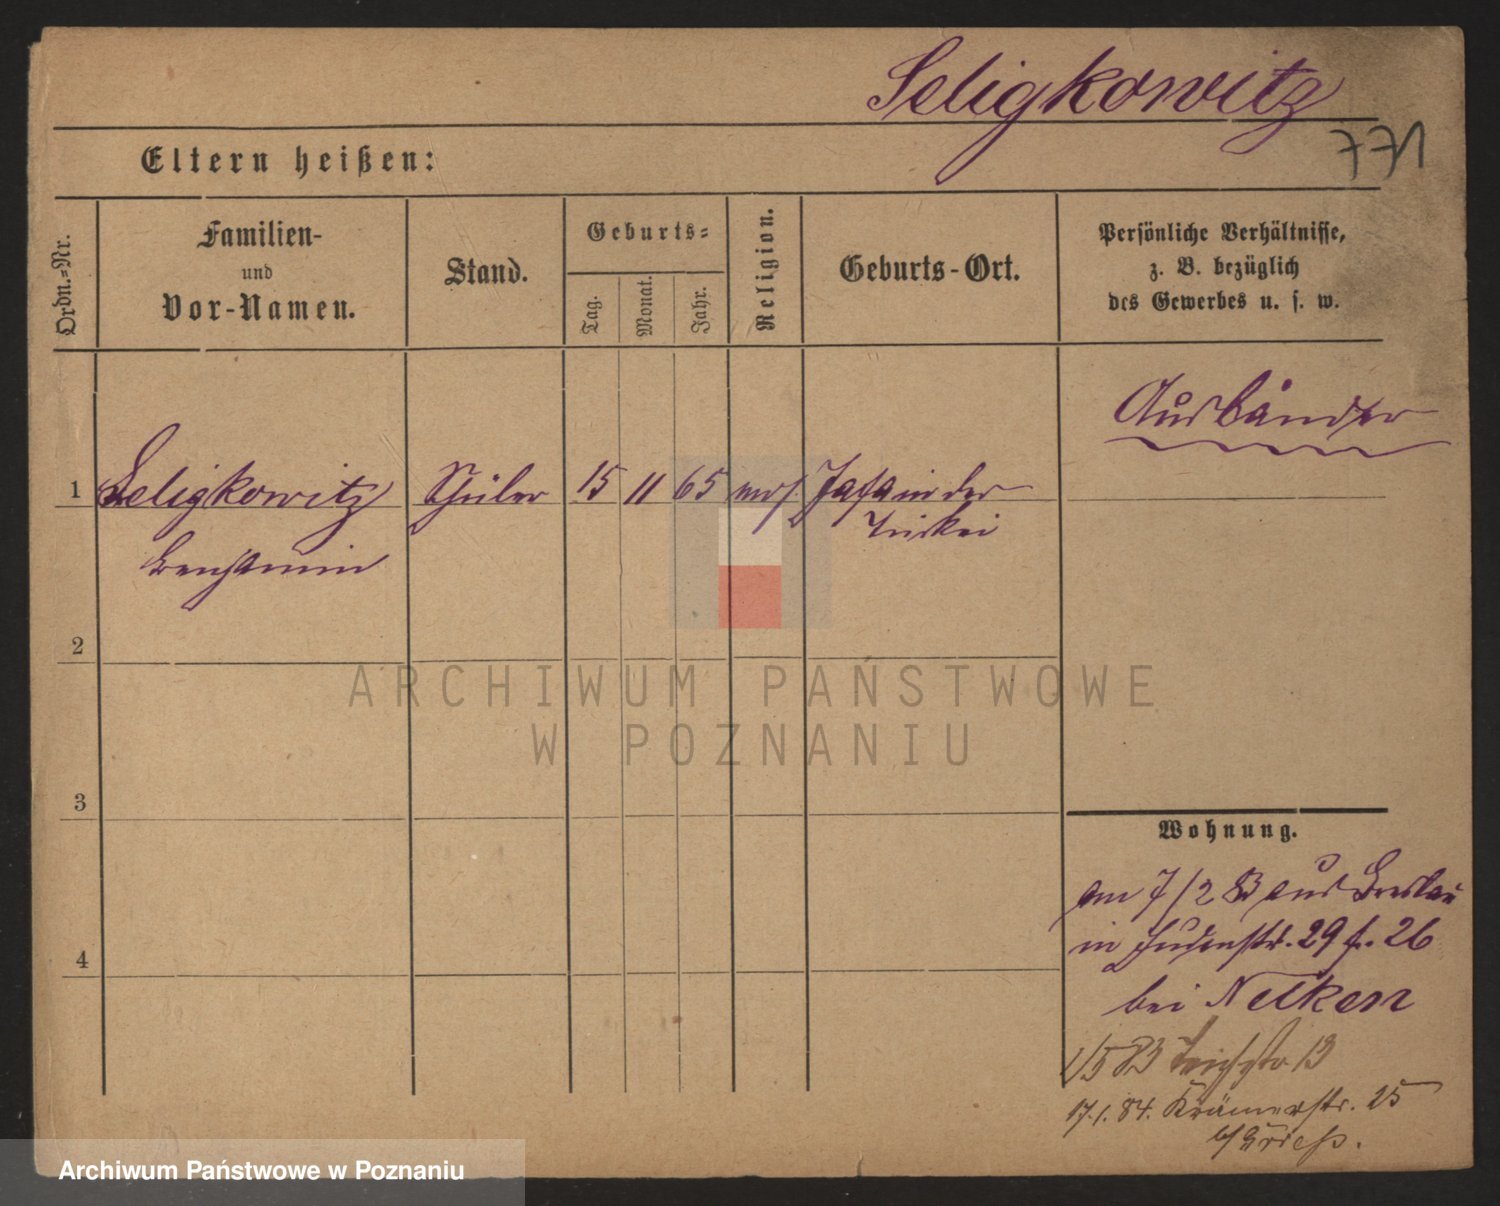 Seligkowitz
771
Eltern heißen:
Ordn.-Nr.
Familien-
und
Vor-Namen.
Stand.
Geburts-
Tag.
Monat.
Jahr.
Religion.
Geburts-Ort.
Persönliche Verhältnisse,
z. B. bezüglich
des Gewerbes u. s. w.
Ausländer
1 Seligkowitz Schüler 15 11 65 mos. Jafa in der
Türkei
Benjamin
2
ARCHIWUM PAŃSTWOWE
W POZNANIU
3
Wohnung.
am 7/2 83 aus Breslau
in Judenstr. 29 f. 26
bei Nelken
4
1/5 83 Teichstr 13
17.1.84. Krämerstr. 25
b/
Archiwum Państwowe w Poznaniu